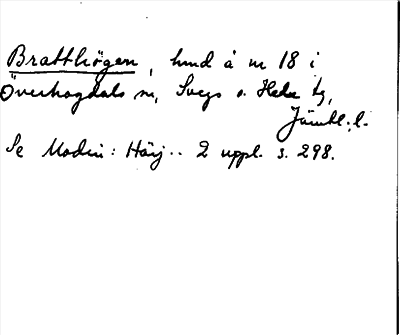 Bratthögen, hmd å nr 18 i
Överhogdals sn, Svegs o. Hede tg,
Jämtl. l.
Se Modin: Härj.. 2 uppl. s. 298.